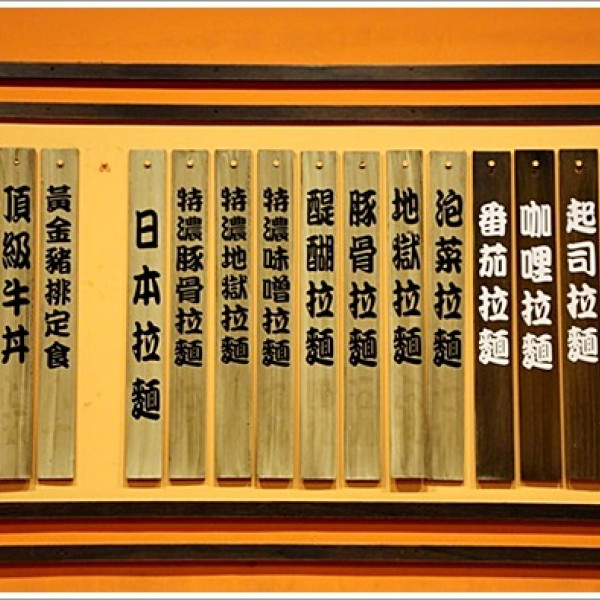 起司拉麵
咖哩拉麵
番茄拉麵
泡菜拉麵
地獄拉麵
豚骨拉麵
醍醐拉麵
特濃味噌拉麵
特濃地獄拉麵
特濃豚骨拉麵
日本拉麵
黃金豬排定食
頂級牛丼